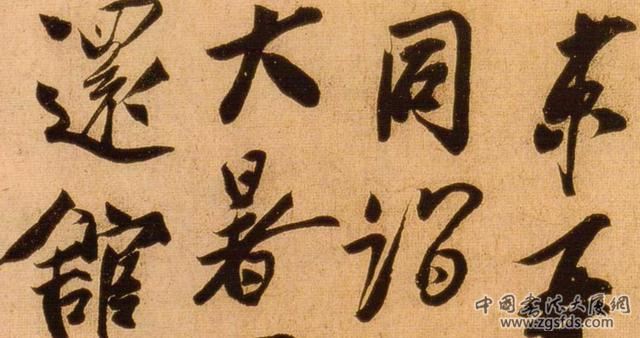 同詣
大暑
還館
中国书法大厦網
www.zgsfds.com